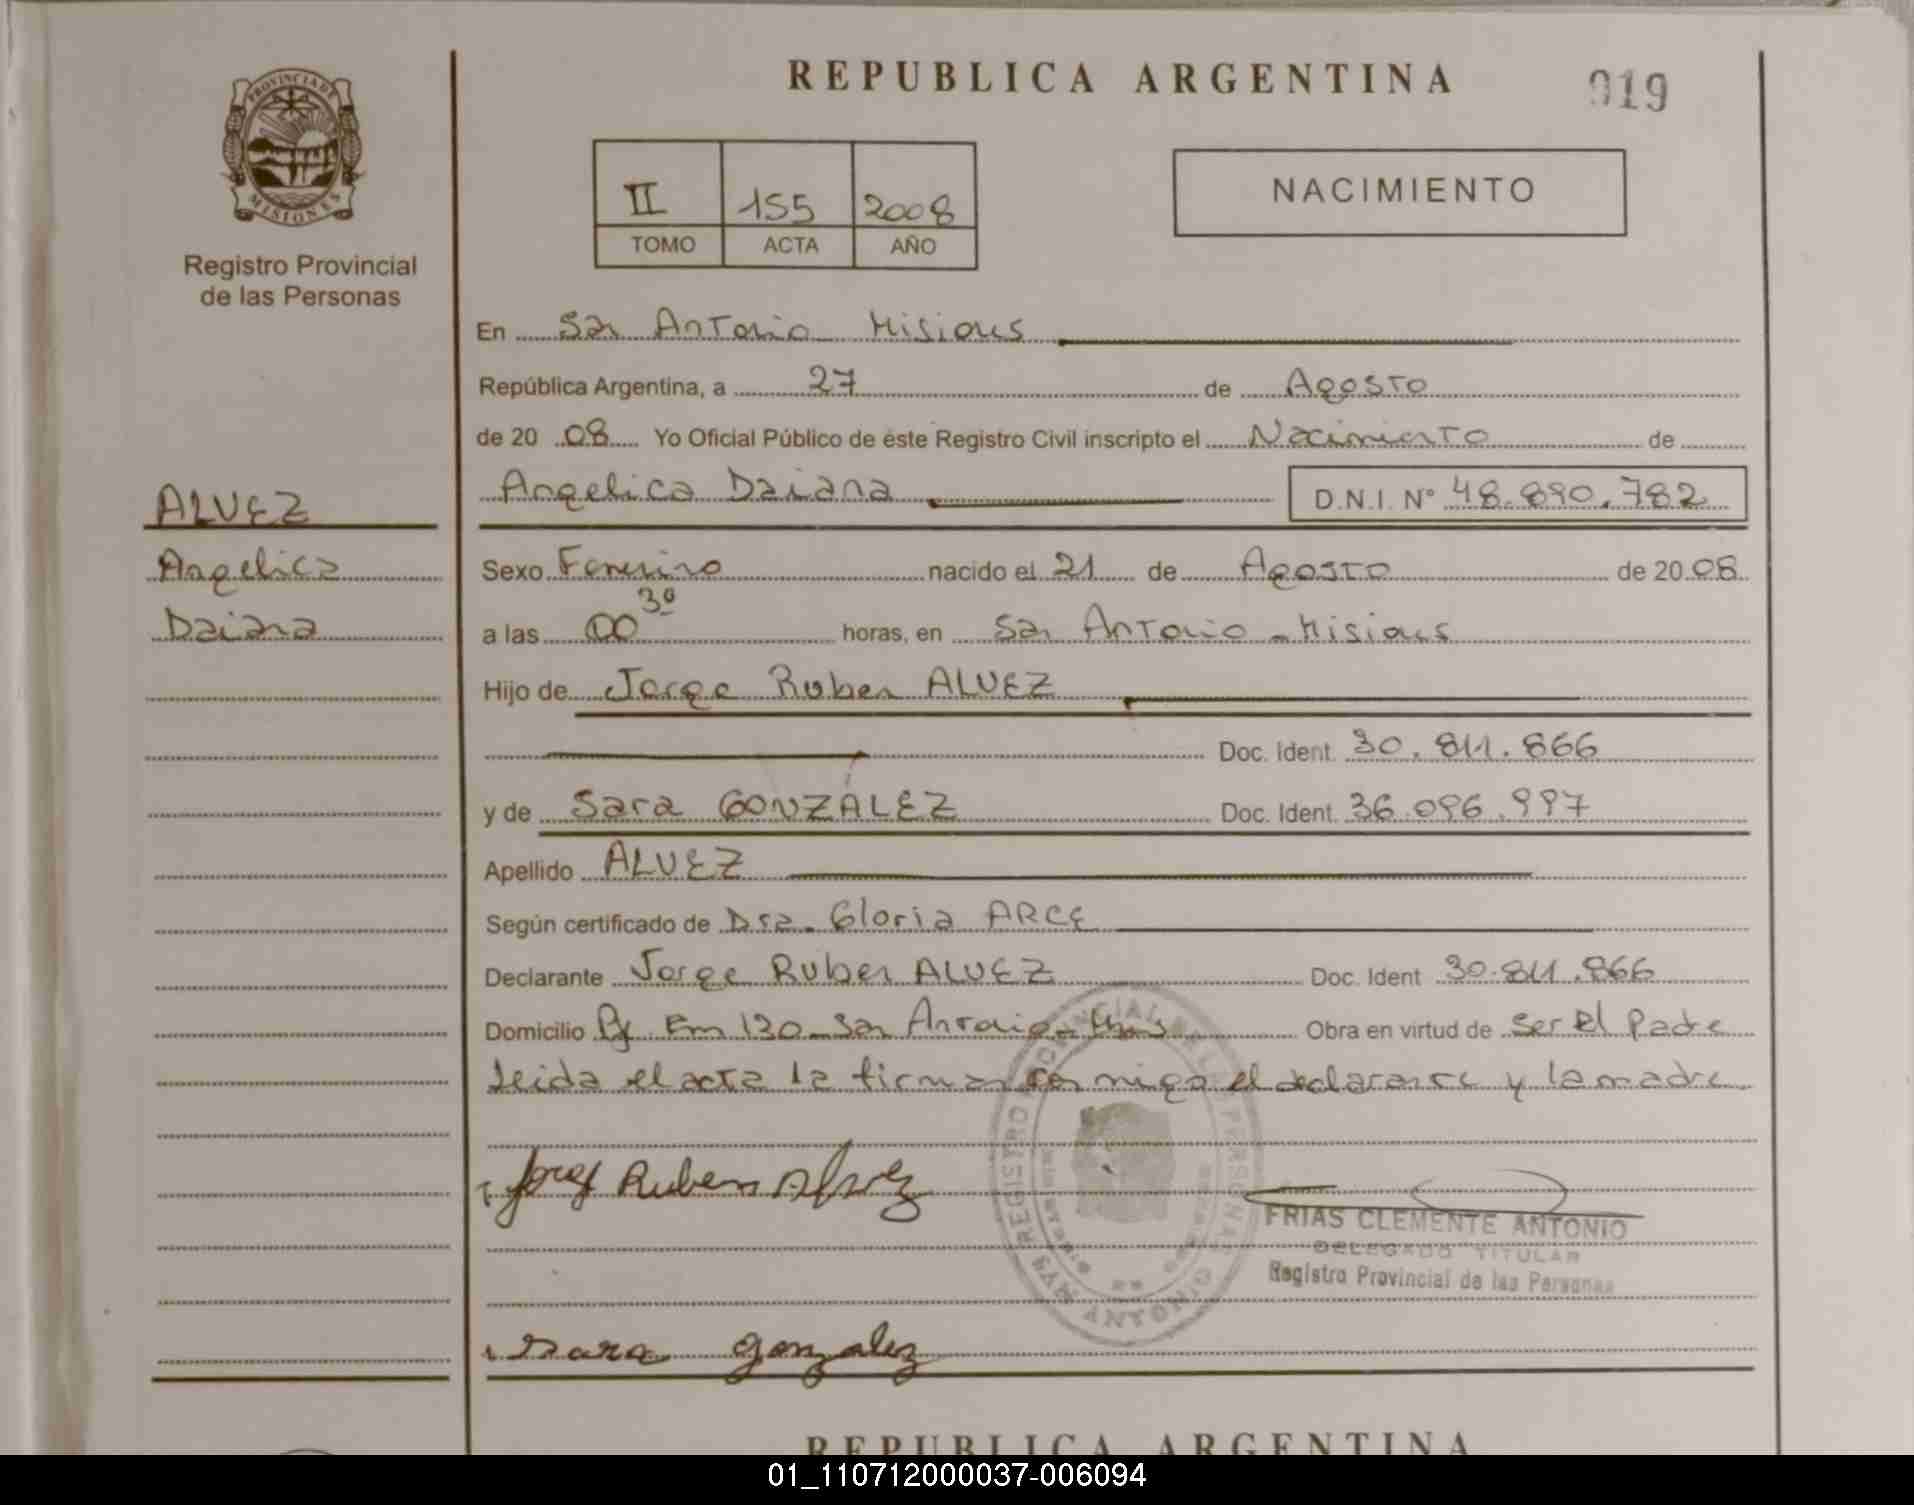 REPUBLICA ARGENTINA
019
PROVINCIA DE
MISIONES
Registro Provincial
de las Personas
II 155 2008
TOMO ACTA AÑO
NACIMIENTO
En San Antonio Misiones
República Argentina, a 27 de Agosto
de 20 08 Yo Oficial Público de éste Registro Civil inscripto el Nacimiento de
Angelica Daiana D.N.I. Nº 48.890.782
ALVEZ
Angelica
Daiana
Sexo Femenino nacido el 21 de Agosto de 20 08
a las 00 30 horas, en San Antonio - Misiones
Hijo de Jorge Ruben ALVEZ
Doc. Ident. 30.811.866
y de Sara GONZÁLEZ Doc. Ident. 36.096.997
Apellido ALVEZ
Según certificado de Dra. Gloria ARCE
Declarante Jorge Ruben ALVEZ Doc. Ident 30.811.866
Domicilio Pje. Km 130 - San Antonio - Mnes Obra en virtud de Ser El Padre
Leida el acta la firman conmigo el declarante y la madre
Jorge Ruben Alvez
REGISTRO PROVINCIAL DE LAS PERSONAS
SAN ANTONIO
FRIAS CLEMENTE ANTONIO
DELEGADO TITULAR
Registro Provincial de las Personas
Sara gonzalez
REPUBLICA ARGENTINA
01_110712000037-006094